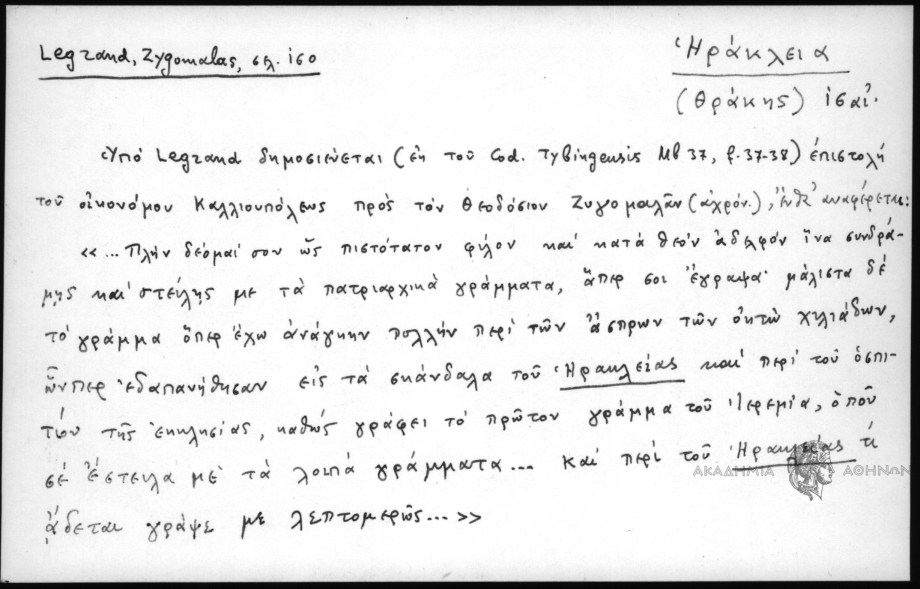 Legrand, Zygomalas, σελ. 160
Ἡράκλεια
(Θράκης) ἰσαί.
Ὑπό Legrand δημοσιεύεται (ἐκ τοῦ Cod. Tybingensis Mb 37, f. 37-38) ἐπιστολή
τοῦ οἰκονόμου Καλλιουπόλεως πρὸς τὸν Θεοδόσιον Ζυγομαλᾶν (ἀχρόν.), ἔνθ' ἀναφέρεται:
«... Πλήν δέομαί σου ὡς πιστότατον φίλον καί κατά θεόν ἀδελφόν ἵνα συνδρά-
μῃς καί στείλῃς με τὰ πατριαρχικά γράμματα, ἅπερ σοι ἔγραψα· μάλιστα δέ
τό γράμμα ὅπερ ἔχω ἀνάγκην πολλήν περί τῶν ἄσπρων τῶν ὀκτώ χιλιάδων,
ὧνπερ ἐδαπανήθησαν εἰς τὰ σκάνδαλα τοῦ Ἡρακλείας καί περί τοῦ ὁσπι-
τίου τῆς ἐκκλησίας, καθώς γράφει τό πρῶτον γράμμα τοῦ Ἱερεμία, ὁποῦ
σέ ἔστειλα μὲ τὰ λοιπά γράμματα... Καί περί τοῦ Ἡρακλείας τί
ᾄδεται γράψε με λεπτομερῶς... »
ΑΚΑΔΗΜΙΑ ΑΘΗΝΩΝ